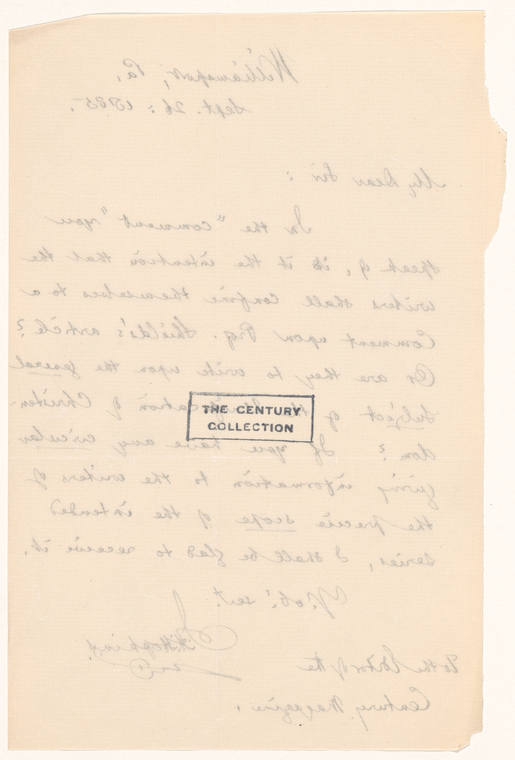 Williamsport, Pa,
Sept. 26: 1885.
My Dear Sir:
In the "comment" you
speak of, is it the intention that the
writers shall confine themselves to a
Comment upon Prof. Shields's article?
Or are they to write upon the general
subject of the of Christen-
dom? If you have any circular
giving information to the writers of
the precise scope of the intended
series, I shall be glad to receive it.
Yr. ob: sert.
Hopkins
To the Editor of the
Century Magazine.
THE CENTURY
COLLECTION